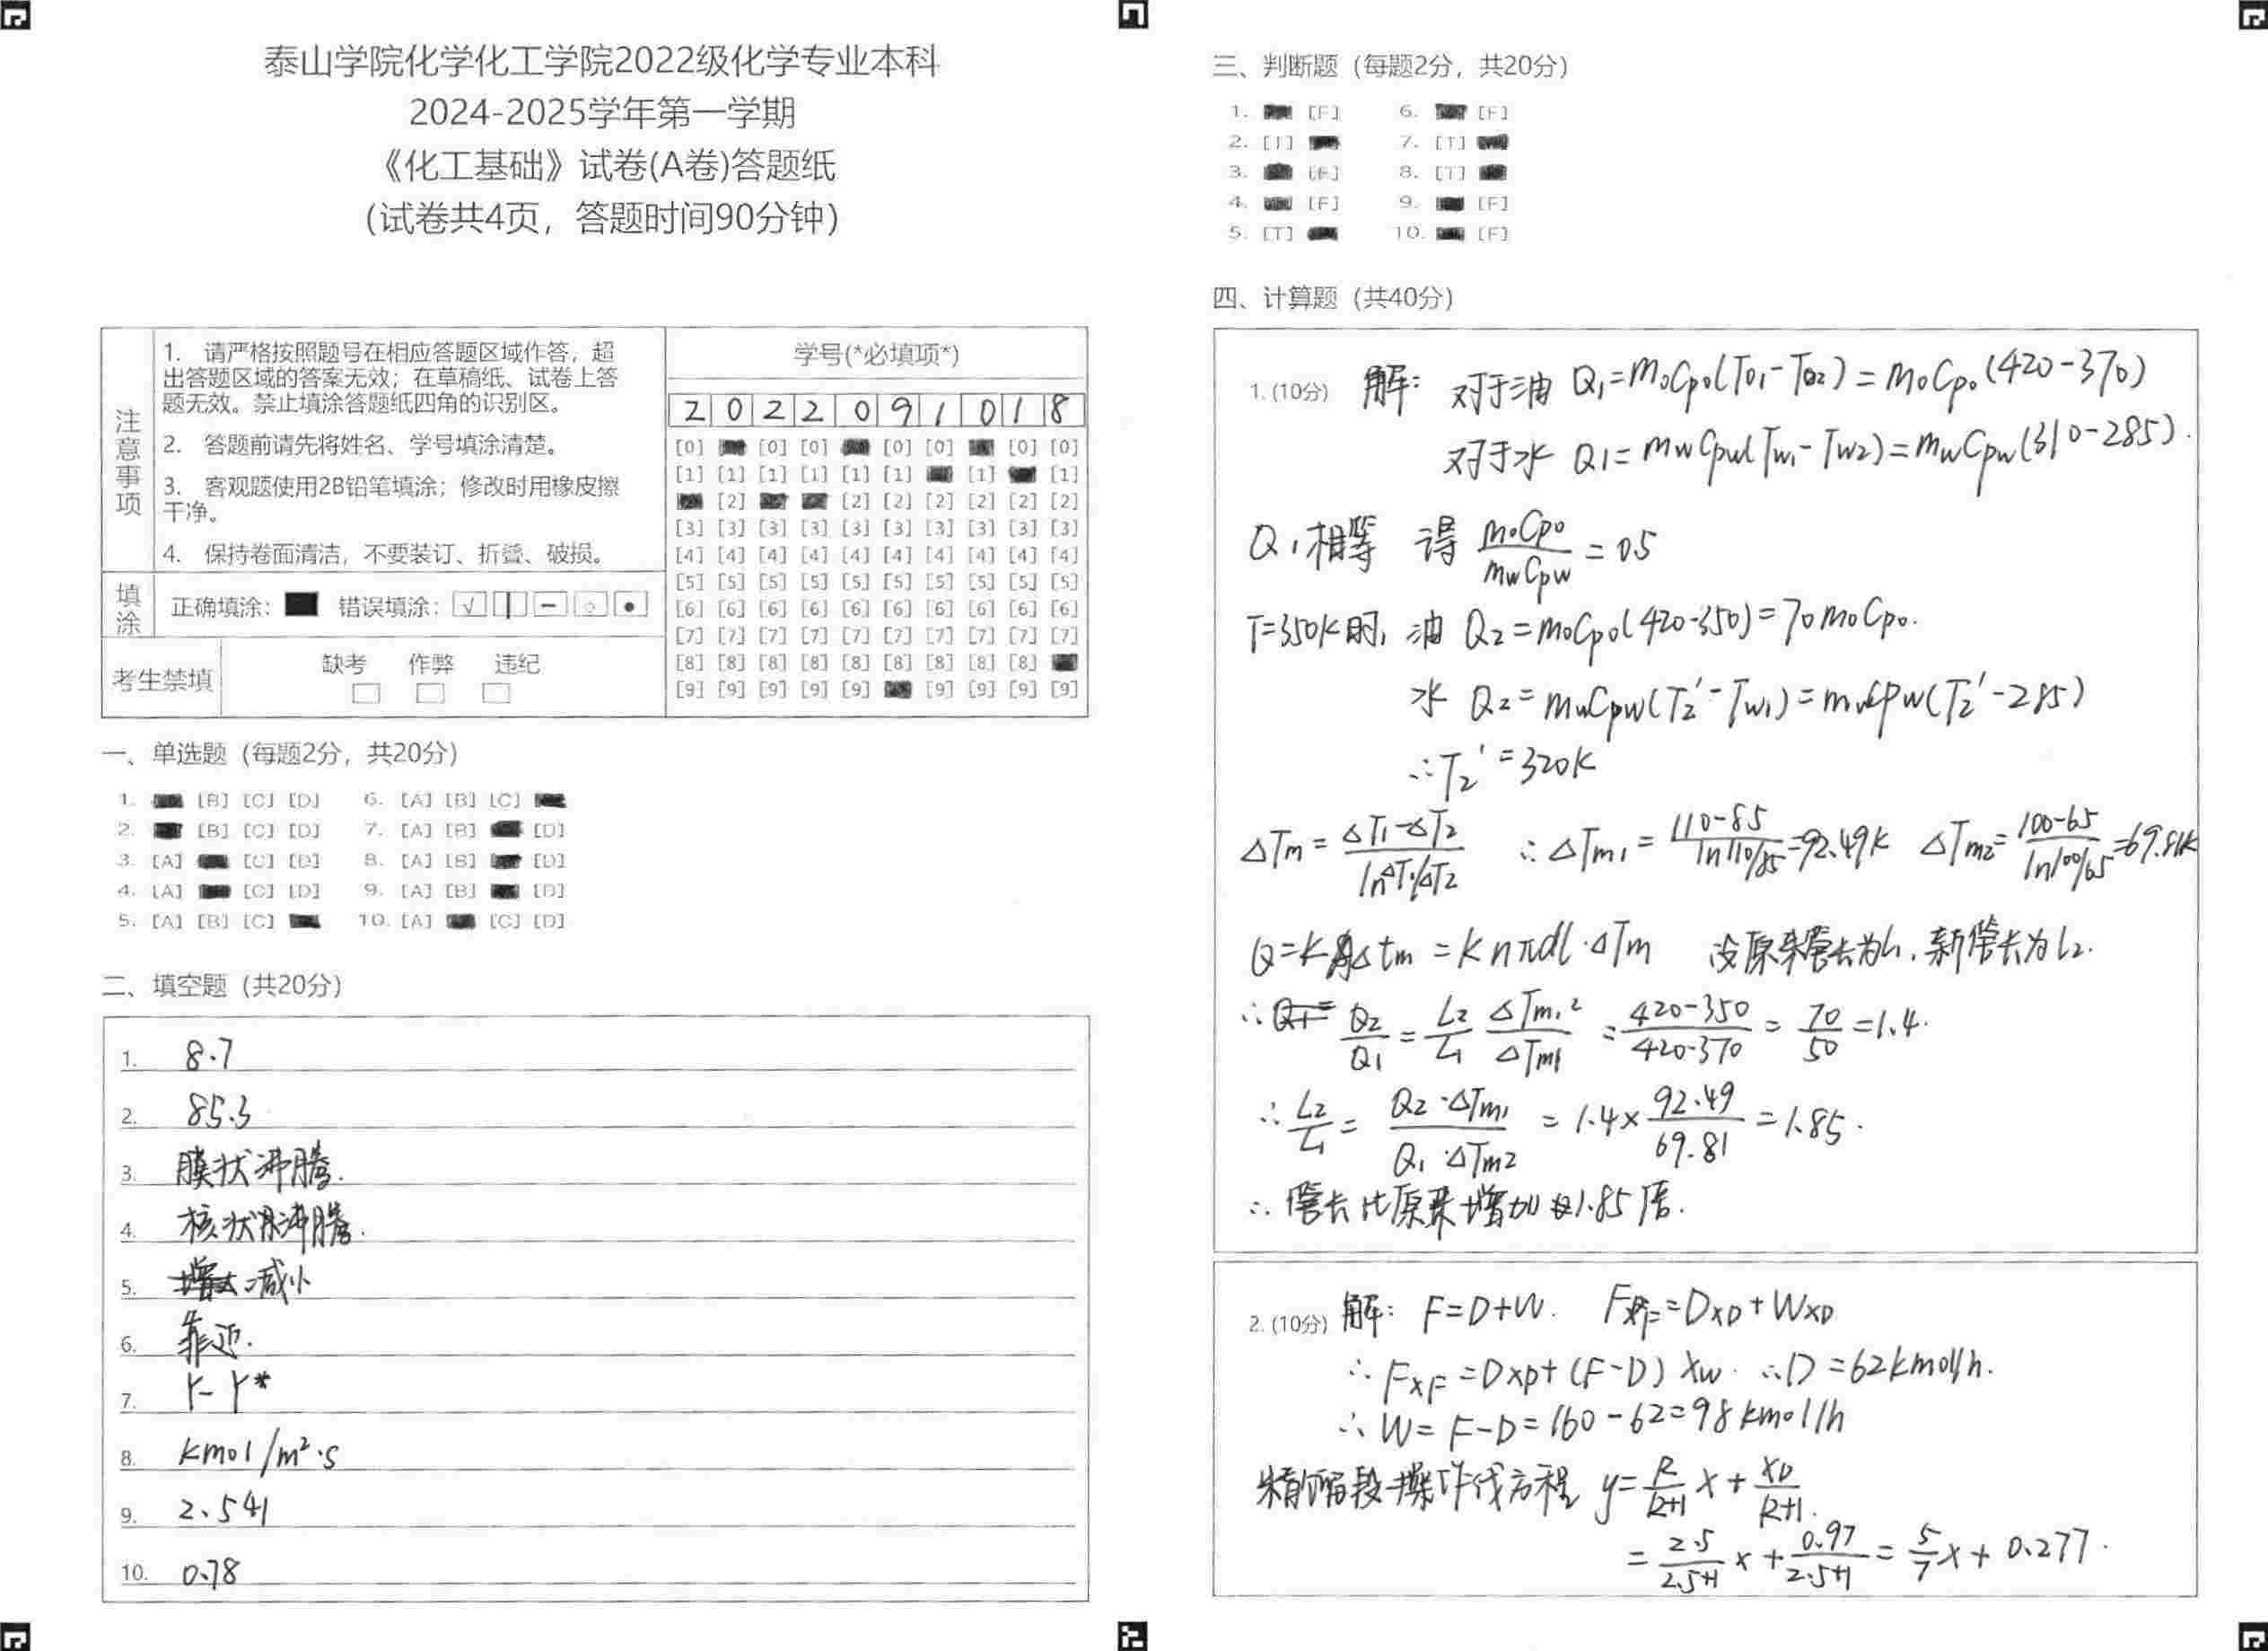 泰山学院化学化工学院2022级化学专业本科
2024-2025学年第一学期
《化工基础》试卷(A卷)答题纸
(试卷共4页，答题时间90分钟)
注意事项
1. 请严格按照题号在相应答题区域作答，超
出答题区域的答案无效；在草稿纸、试卷上答
题无效。禁止填涂答题纸四角的识别区。
2. 答题前请先将姓名、学号填涂清楚。
3. 客观题使用2B铅笔填涂；修改时用橡皮擦
干净。
4. 保持卷面清洁，不要装订、折叠、破损。
填涂 正确填涂： 错误填涂：
考生禁填 缺考 作弊 违纪
学号(*必填项*)
2 0 2 2 0 9 1 0 1 8
[0] [0] [0] [0] [0] [0] [0]
[1] [1] [1] [1] [1] [1] [1] [1]
[2] [2] [2] [2] [2] [2] [2]
[3] [3] [3] [3] [3] [3] [3] [3] [3] [3]
[4] [4] [4] [4] [4] [4] [4] [4] [4] [4]
[5] [5] [5] [5] [5] [5] [5] [5] [5] [5]
[6] [6] [6] [6] [6] [6] [6] [6] [6] [6]
[7] [7] [7] [7] [7] [7] [7] [7] [7] [7]
[8] [8] [8] [8] [8] [8] [8] [8] [8]
[9] [9] [9] [9] [9] [9] [9] [9] [9]
一、单选题（每题2分，共20分）
1. [B] [C] [D] 6. [A] [B] [C]
2. [B] [C] [D] 7. [A] [B] [D]
3. [A] [C] [D] 8. [A] [B] [D]
4. [A] [C] [D] 9. [A] [B] [D]
5. [A] [B] [C] 10. [A] [C] [D]
二、填空题（共20分）
1. 8.7
2. 85.3
3. 膜状沸腾.
4. 核状沸腾.
5. 减小
6. 靠近.
7. Y-Y*
8. kmol/m²·s
9. 2.541
10. 0.78
三、判断题（每题2分，共20分）
1. [F] 6. [F]
2. [T] 7. [T]
3. [F] 8. [T]
4. [F] 9. [F]
5. [T] 10. [F]
四、计算题（共40分）
1. (10分) 解：对于油 Q₁=m₀Cp₀(T₀₁-T₀₂)=m₀Cp₀(420-370)
对于水 Q₁=mwCpw(Tw₁-Tw₂)=mwCpw(310-285).
Q₁相等 得 m₀Cp₀/mwCpw = 0.5
T=350K时, 油 Q₂=m₀Cp₀(420-350)=70m₀Cp₀.
水 Q₂=mwCpw(T₂'-Tw₁)=mwCpw(T₂'-285)
∴T₂'=320K
ΔTm=(ΔT₁-ΔT₂)/(lnΔT₁/ΔT₂) ∴ΔTm₁=(110-85)/(ln110/85)=92.49K ΔTm₂=(100-65)/(ln100/65)=69.81K
Q=KAΔtm=Knπdl·ΔTm 设原来管长为L₁, 新管长为L₂.
∴ Q₂/Q₁=L₂/L₁ ΔTm₂/ΔTm₁=(420-350)/(420-370)=70/50=1.4.
∴L₂/L₁=(Q₂·ΔTm₁)/(Q₁·ΔTm₂)=1.4×92.49/69.81=1.85.
∴管长比原来增加1.85倍.
2. (10分) 解：F=D+W. FxF=DxD+WxD
∴FxF=DxD+(F-D)xw. ∴D=62kmol/h.
∴W=F-D=160-62=98kmol/h
精馏段操作线方程 y=R/(R+1) x+xD/(R+1).
=2.5/(2.5+1) x+0.97/(2.5+1)=5/7 x+0.277.